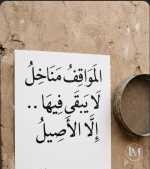 المَوَاقِفُ مَنَاخِلُ
لَا يَبقَى فِيهَا ..
إِلَّا الأَصِيلُ